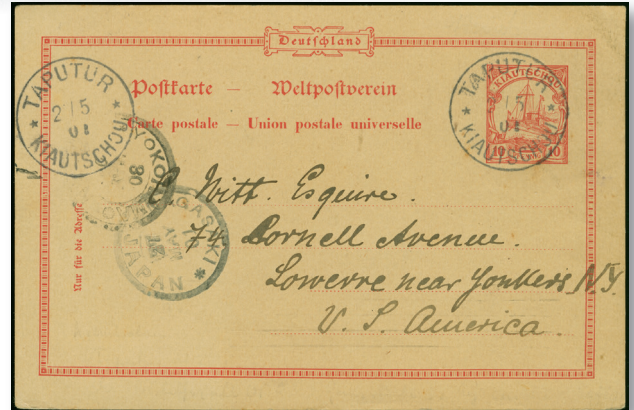 Deutschland
Postkarte — Weltpostverein
Carte postale — Union postale universelle
TAPUTUR
2 5
01
KIAUTSCHOU
TAPUTUR
5
01
KIAUTSCHOU
KIAUTSCHOU
10 10
YOKOHAMA
NAGASAKI
JAPAN
Nur für die Adresse
Witt. Esquire.
74 Cornell Avenue.
Lowerre near Yonkers N.Y.
U. S. America.